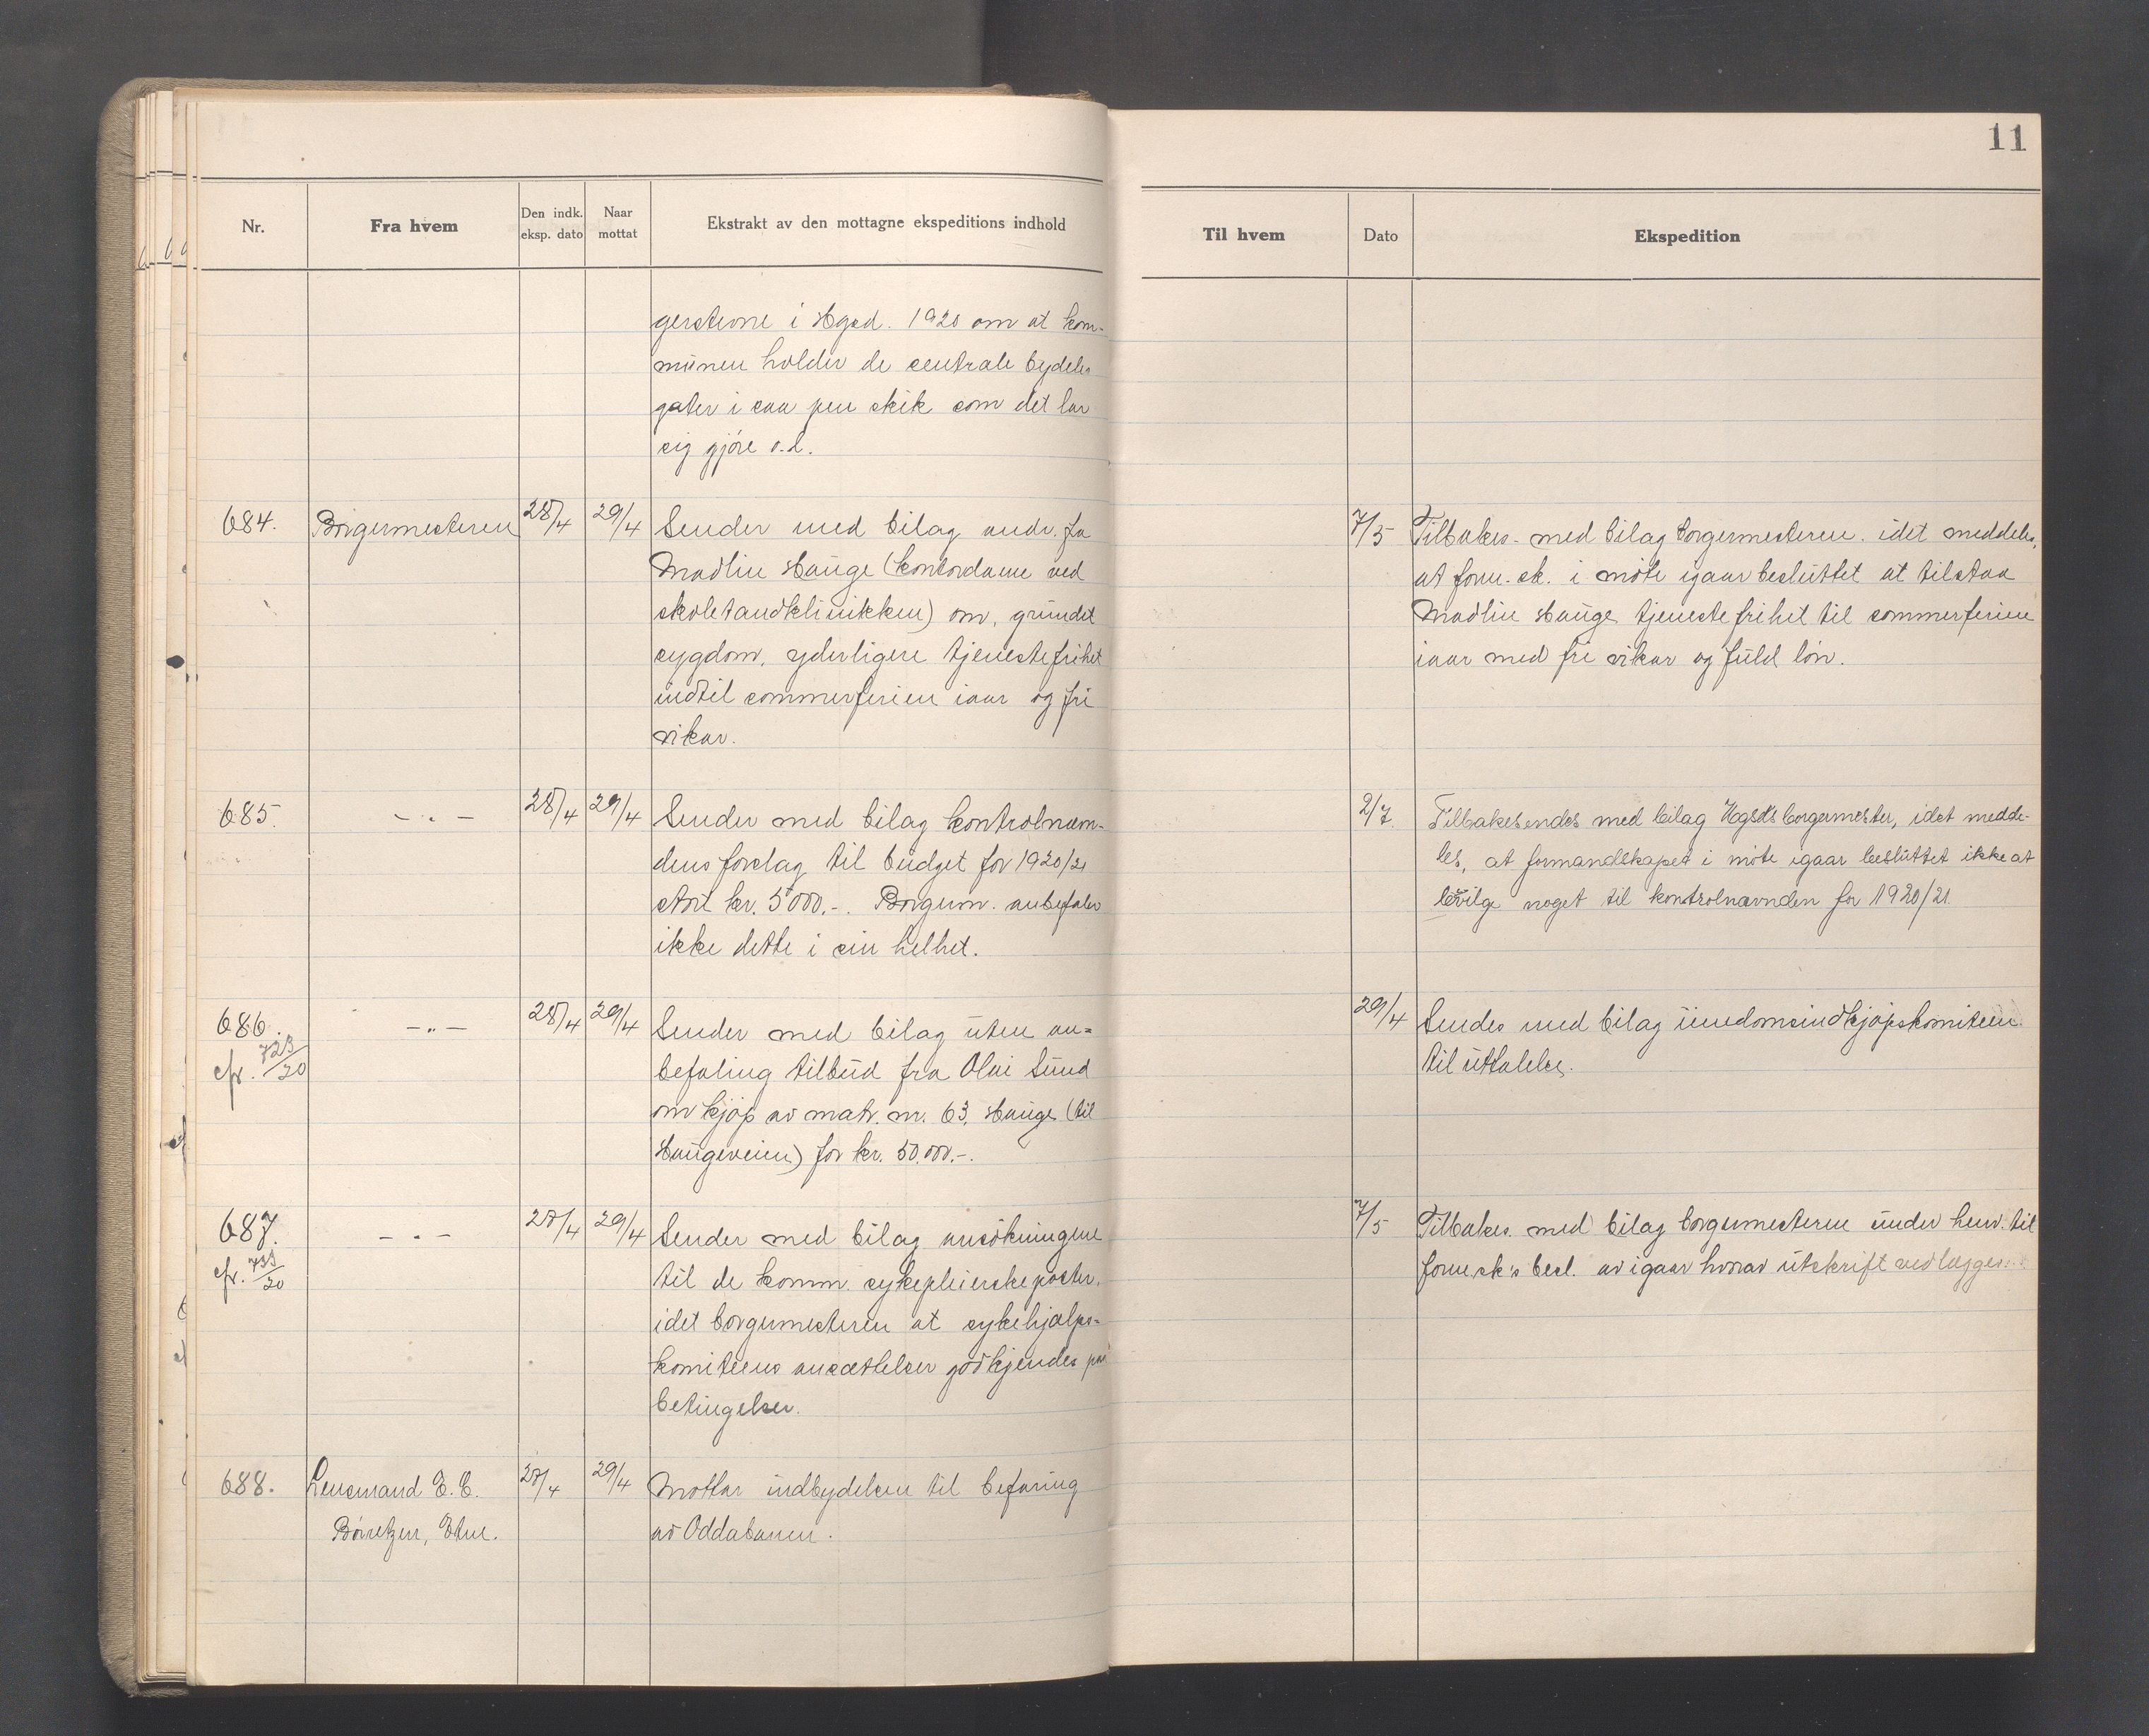 11
Nr.
Fra hvem
Den indk. eksp. dato
Naar mottat
Ekstrakt av den mottagne ekspeditions indhold
Til hvem
Dato
Ekspedition
i Hgsd. 1920 om at kom-
munen holder de centrale bydeles
gater i saa pen skik som det lar
sig gjöre o.l.
684.
Borgermesteren
28/4
29/4
Sender med bilag andr. fra
Madlin Hauge (kontordame ved
skoletandklinikken) om, grundet
sygdom, yderligere tjenestefrihet
indtil sommerferien iaar og fri
vikar.
7/5
Tilbakes. med bilag borgermesteren. idet meddeles,
at form.sk. i möte igaar besluttet at tilstaa
Madlin Hauge tjenestefrihet til sommerferien
iaar med fri vikar og fuld lön.
685.
- " -
28/4
29/4
Sender med bilag kontrolnæm-
dens forslag til budget for 1920/21
stort kr. 5000.-. Borgerm. anbefaler
ikke dette i sin helhet.
2/7.
Tilbakesendes med bilag Hgsds borgermester, idet medde-
les, at formandskapet i möte igaar besluttet ikke at
bevilge noget til kontrolnævnden for 1920/21.
686.
cfr. 723/20
- " -
28/4
29/4
Sender med bilag uten an=
befaling tilbud fra Olai Sund
om kjöp av matr. nr. 63, Hauge (til
Haugeveien) for kr. 50.000.-.
29/4
Sendes med bilag
til uttalelse.
687.
cfr. 733/20
- " -
28/4
29/4
Sender med bilag ansökningene
til de komm. sykepleierskeposter,
idet borgermesteren at sykehjælps=
komiteens ansættelser godkjendes paa
betingelser.
7/5
Tilbakes. med bilag borgermesteren under henv. til
form.sk's besl. av igaar hvorav utskrift vedlægges.
688.
Lensmand E. E.
Börretzen, Etne.
28/4
29/4
Mottar indbydelsen til befaring
av Oddabanen.